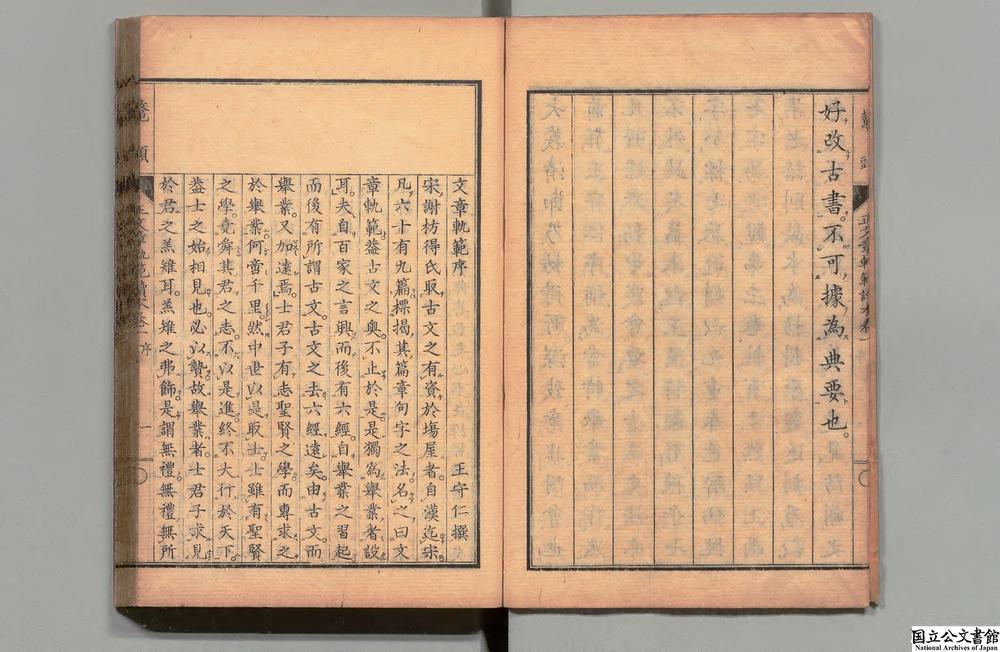 好改古書不可據為典要也。
文章軌範序
王守仁撰
宋謝枋得氏取古文之有資於塲屋者自漢迄宋
凡六十有九篇標揭其篇章句字之法名之曰文
章軌範蓋古文之奥不止於是是獨爲舉業者設
耳夫自百家之言興而後有六經自舉業之習起
而後有所謂古文古文之去六經遠矣由古文而
舉業又加遠焉士君子有志聖賢之學而專求之
於舉業何啻千里然中世以是取士士雖有聖賢
之學堯舜其君之志不以是進終不大行於天下
蓋士之始相見也必以贄故舉業者士君子求見
於君之羔雉耳羔雉之弗飾是謂無禮無禮無所
鼇頭
序
一
国立公文書館
National Archives of Japan